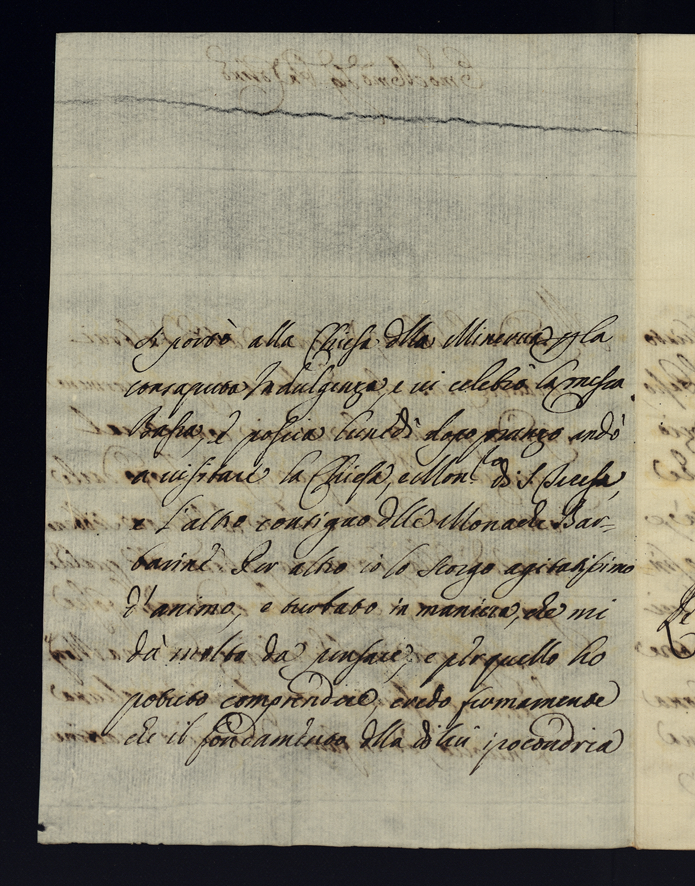 si portò alla Chiesa della Minerva p la
consaputa Indulgenza, e vi celebrò la messa
Bassa, e poscia lunedì dopo pranzo andò
a visitare la Chiesa, e Monro di S. Teresa,
e l'altro contiguo delle Monache Bar-
barine Per altro io lo scorgo agitatissimo
d'animo, e turbato in maniera, che mi
dà molto da pensare, e p quello ho
potuto comprendere, credo fermamente
che il fondamento della di lui ipocondria